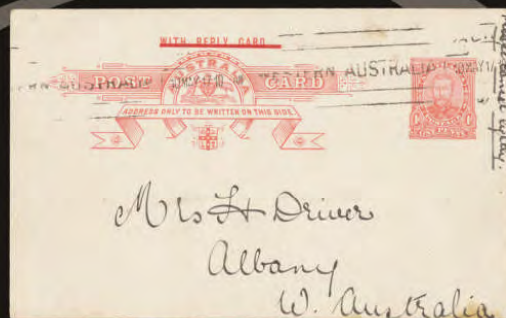 WITH REPLY CARD
POST CARD
AUSTRALIA
ADDRESS ONLY TO BE WRITTEN ON THIS SIDE.
WESTERN AUSTRALIA
ONE PENNY
Mrs H Driver
Albany
W. Australia